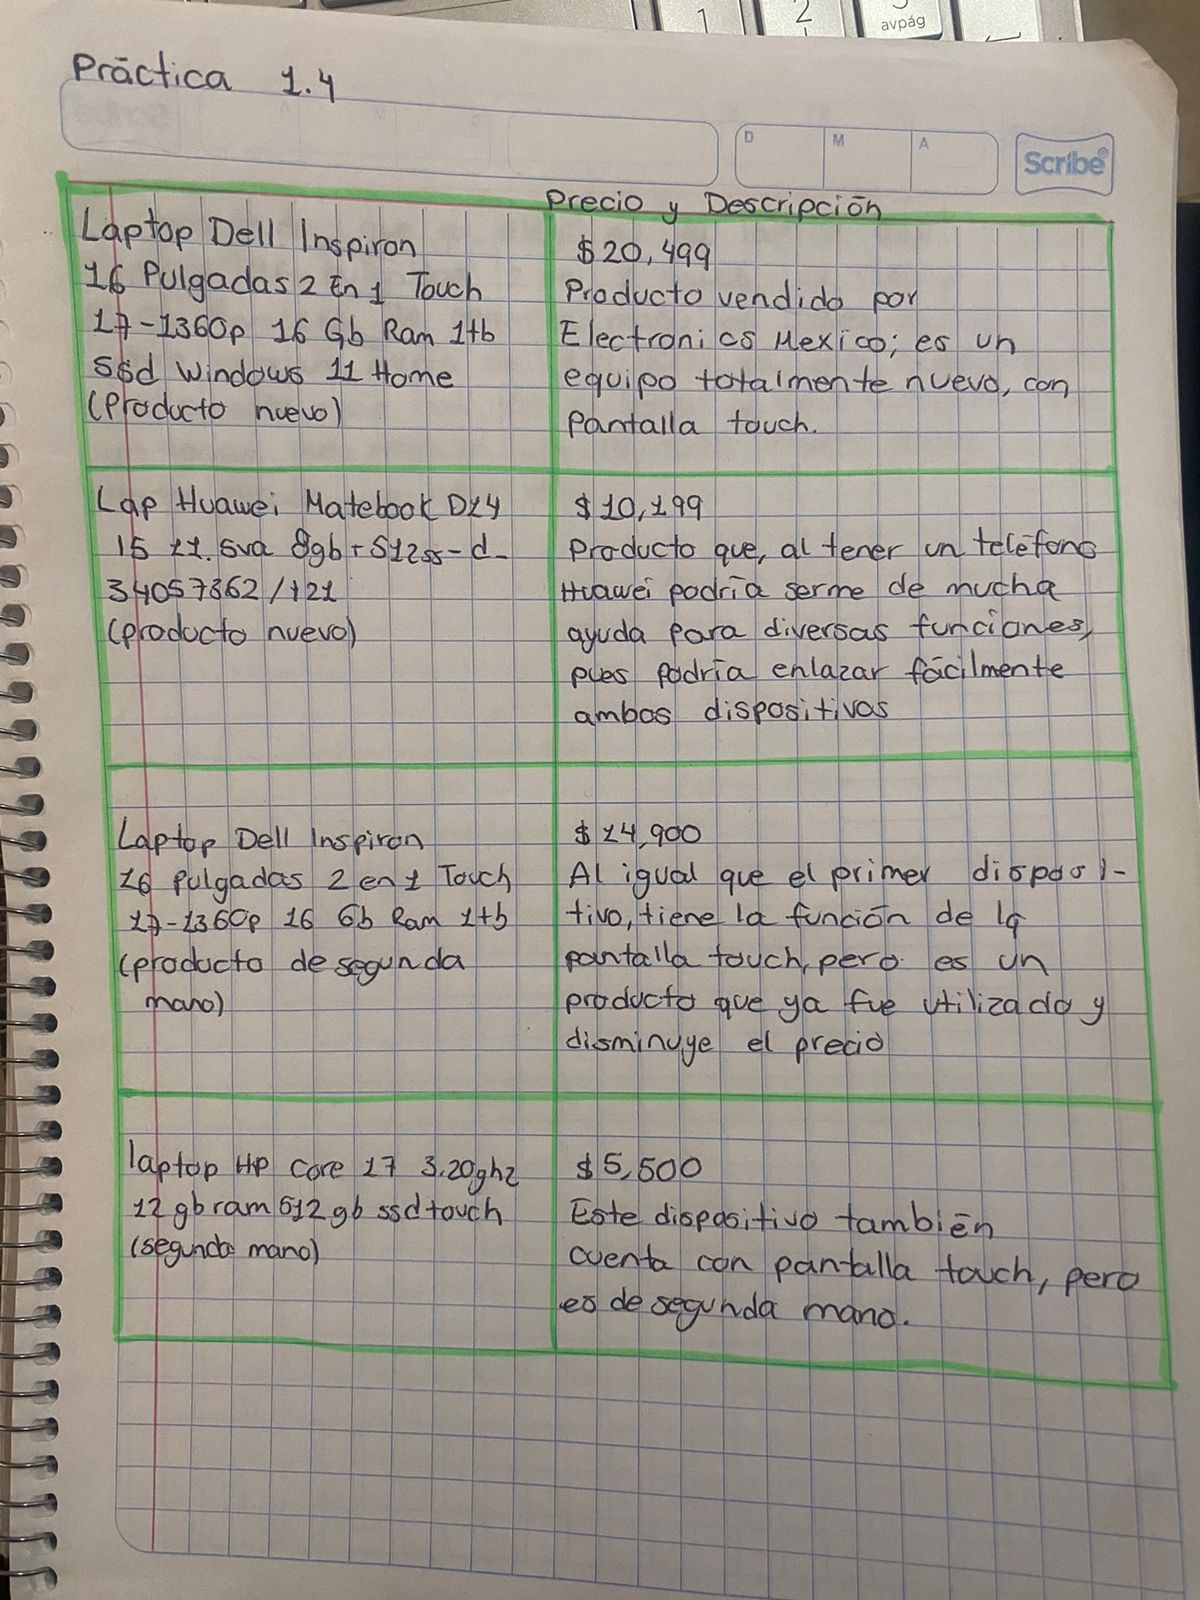 1
2
avpág
Práctica 1.4
D
M
A
Scribe
Precio y Descripción
Laptop Dell Inspiron
16 Pulgadas 2 En 1 Touch
17-1360p 16 Gb Ram 1tb
ssd Windows 11 Home
(Producto nuevo)
$20,499
Producto vendido por
Electronics Mexico; es un
equipo totalmente nuevo, con
Pantalla touch.
Lap Huawei Matebook D14
15 11.5va 8gb+512ss-d-
34057362/121
(producto nuevo)
$10,199
Producto que, al tener un teléfono
Huawei podría serme de mucha
ayuda para diversas funciones,
pues podría enlazar fácilmente
ambos dispositivos
Laptop Dell Inspiron
16 Pulgadas 2 en 1 Touch
17-1360p 16 Gb Ram 1tb
(producto de segunda
mano)
$14,900
Al igual que el primer disposi-
tivo, tiene la función de la
pantalla touch, pero es un
producto que ya fue utilizado y
disminuye el precio
laptop HP core 17 3.20ghz
12 gb ram 512 gb ssd touch
(segunda mano)
$5,500
Este dispositivo también
cuenta con pantalla touch, pero
es de segunda mano.